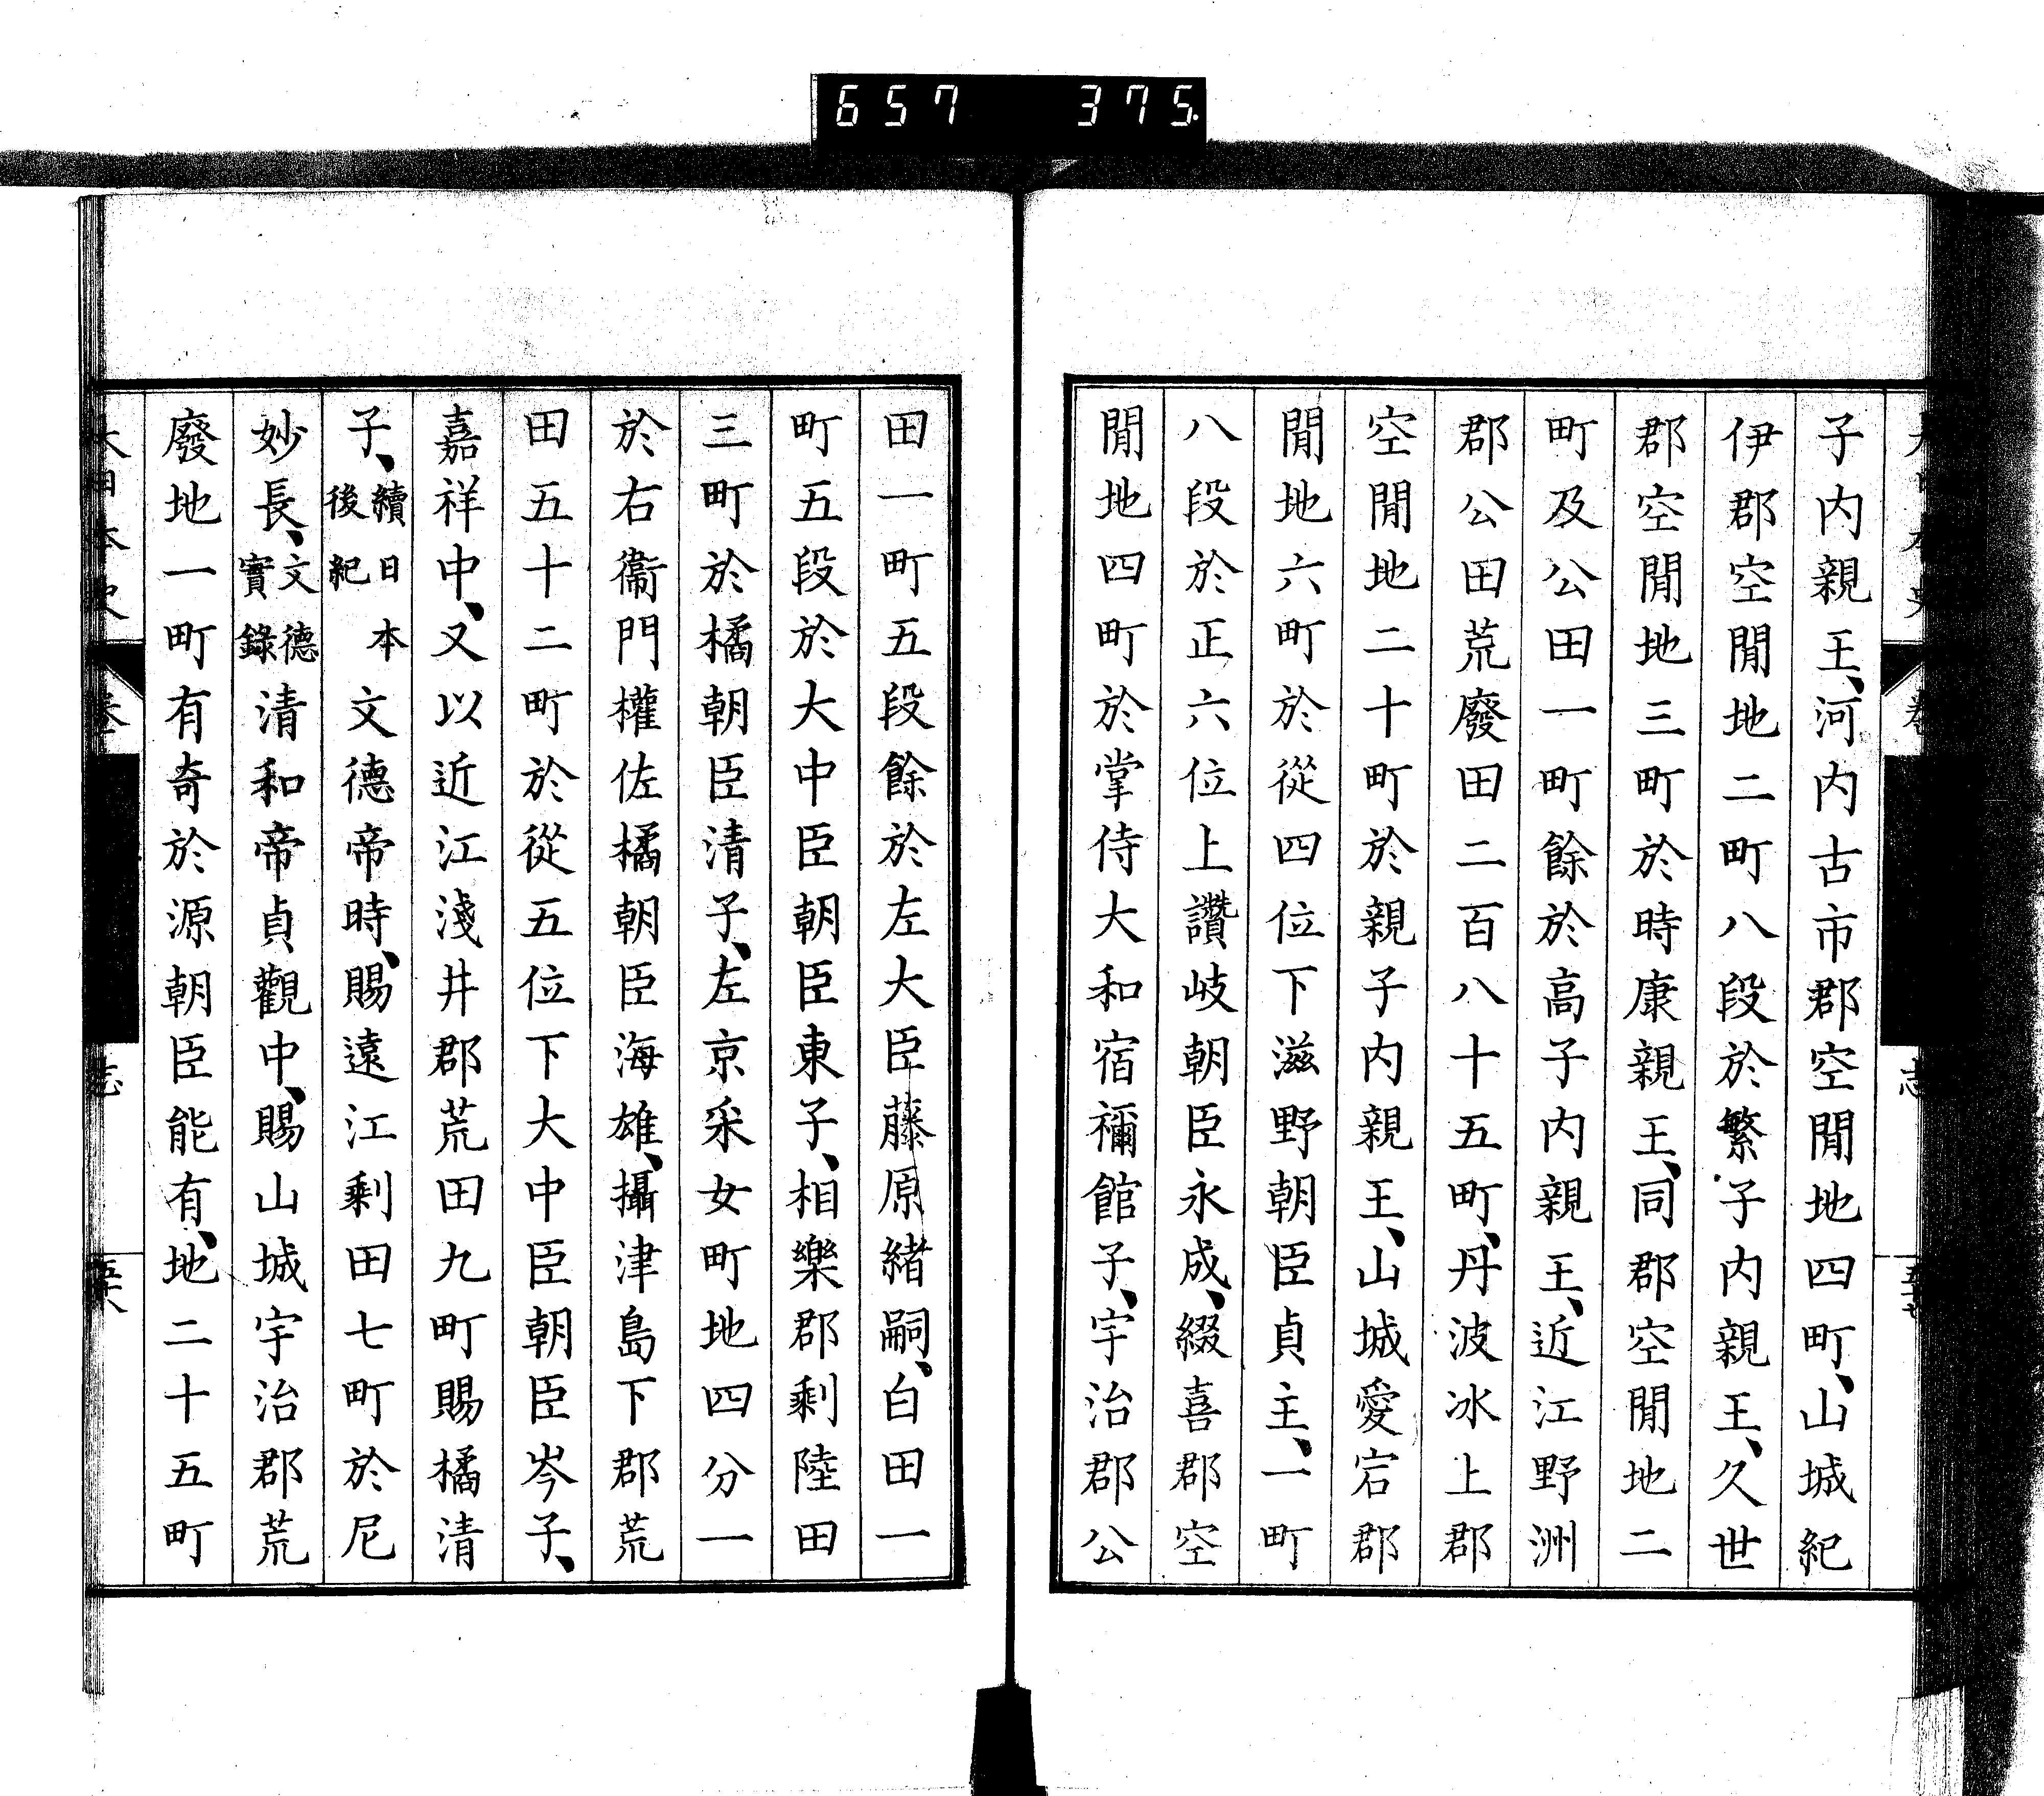 657 375
子内親王、河内古市郡空閒地四町、山城紀
伊郡空閒地二町八段於繁子内親王、久世
郡空閒地三町於時康親王、同郡空閒地二
町及公田一町餘於高子内親王、近江野洲
郡公田荒廢田二百八十五町、丹波冰上郡
空閒地二十町於親子内親王、山城愛宕郡
閒地六町於從四位下滋野朝臣貞主、一町
八段於正六位上讚岐朝臣永成、綴喜郡空
閒地四町於掌侍大和宿禰館子、宇治郡公
田一町五段餘於左大臣藤原緒嗣、白田一
町五段於大中臣朝臣東子、相樂郡剩陸田
三町於橘朝臣清子、左京采女町地四分一
於右衞門權佐橘朝臣海雄、攝津島下郡荒
田五十二町於從五位下大中臣朝臣岑子、
嘉祥中、又以近江淺井郡荒田九町賜橘清
子、續日本後紀文德帝時、賜遠江剩田七町於尼
妙長、文德實錄清和帝貞觀中、賜山城宇治郡荒
廢地一町有奇於源朝臣能有、地二十五町